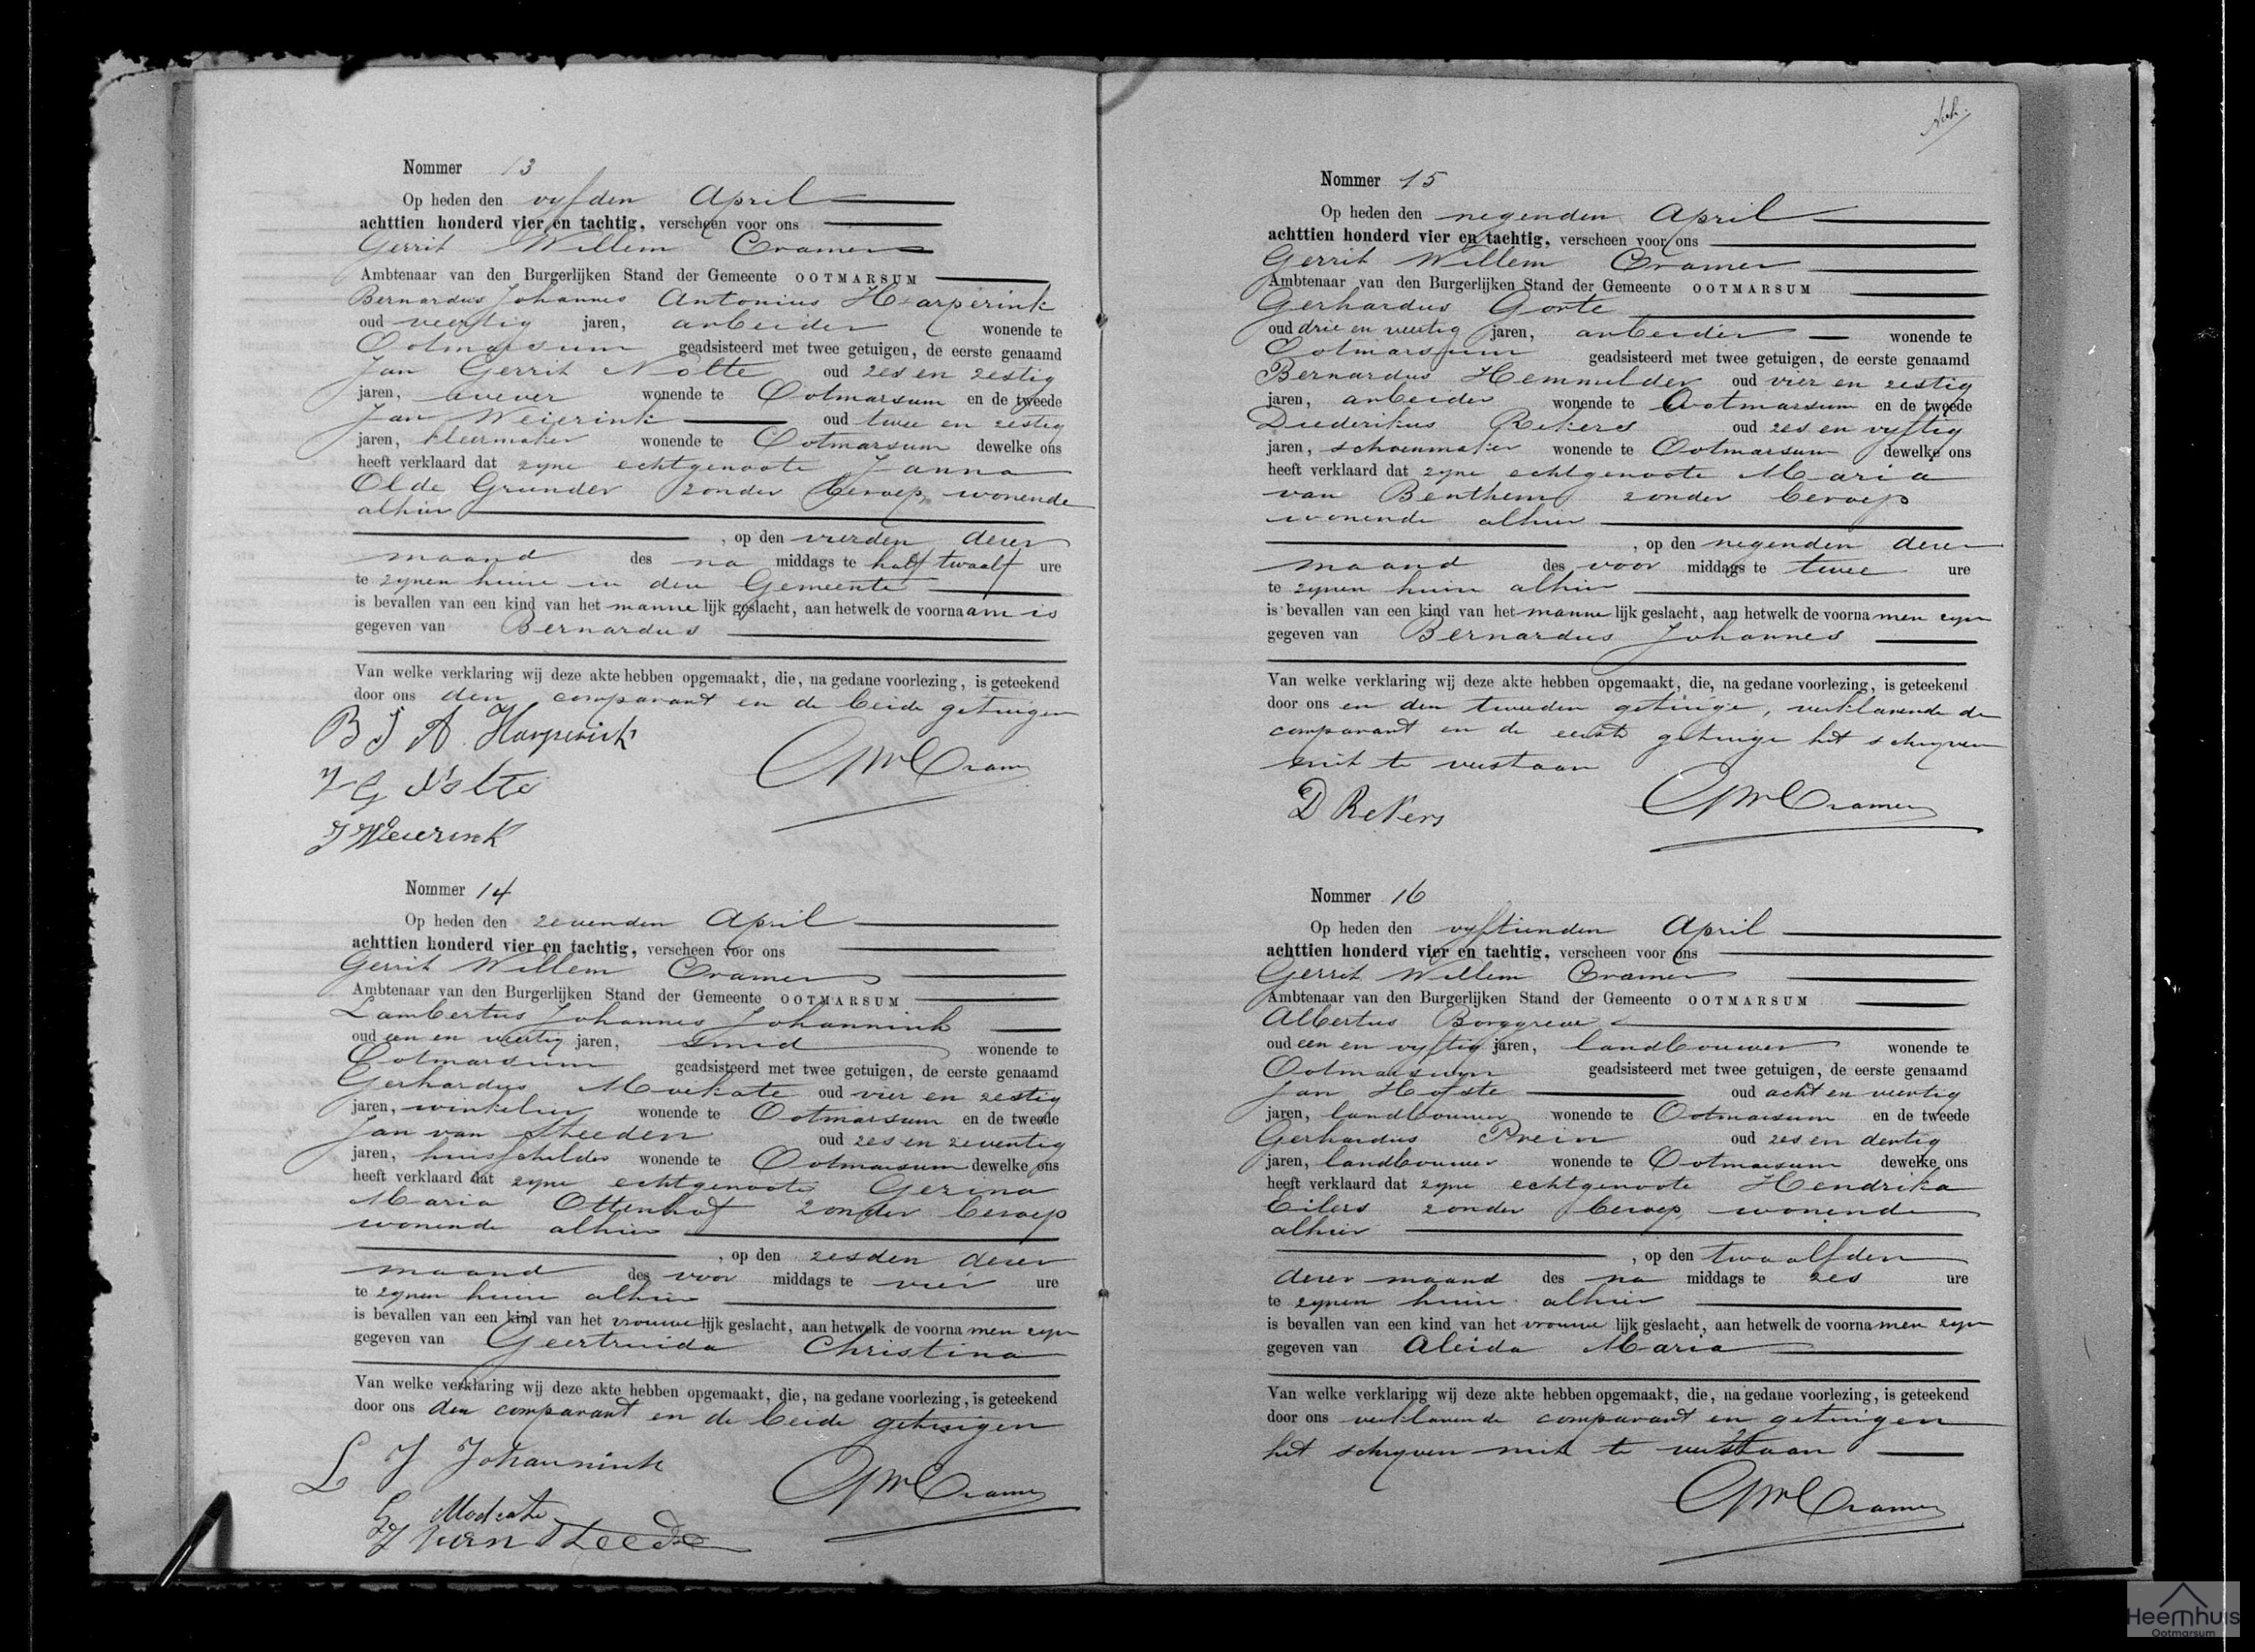 Nommer 13
Op heden den vyfden April
achttien honderd vier en tachtig, verscheen voor ons
Gerrit Willem Cramer
Ambtenaar van den Burgerlijken Stand der Gemeente OOTMARSUM
Bernardus Johannes Antonius Harperink
oud veertig jaren, arbeider wonende te
Ootmarsum geadsisteerd met twee getuigen, de eerste genaamd
Jan Gerrit Nolte oud zes en zestig
jaren, wever wonende te Ootmarsum en de tweede
Jan Weierink oud twee en zestig
jaren, kleermaker wonende te Ootmarsum dewelke ons
heeft verklaard dat zyne echtgenoote Janna
Olde Grunder zonder beroep, wonende
alhier
, op den vierden dezer
maand des na middags te half twaalf ure
te zynen huize in deze Gemeente
is bevallen van een kind van het mannelijk geslacht, aan hetwelk de voornaam is
gegeven van Bernardus
Van welke verklaring wij deze akte hebben opgemaakt, die, na gedane voorlezing, is geteekend
door ons den comparant en de beide getuigen
B J A Harperink
J G Nolte
GWCramer
J Weierink
Nommer 14
Op heden den zevenden April
achttien honderd vier en tachtig, verscheen voor ons
Gerrit Willem Cramer
Ambtenaar van den Burgerlijken Stand der Gemeente OOTMARSUM
Lambertus Johannes Johannink
oud een en veertig jaren, smid wonende te
Ootmarsum geadsisteerd met twee getuigen, de eerste genaamd
Gerhardus Moekate oud vier en zestig
jaren, winkelier wonende te Ootmarsum en de tweede
Jan van Steeden oud zes en zeventig
jaren, huisschilder wonende te Ootmarsum dewelke ons
heeft verklaard dat zyne echtgenoote Gezina
Maria Ottenhof zonder beroep
wonende alhier
, op den zesden dezer
maand des voor middags te vier ure
te zynen huize alhier
is bevallen van een kind van het vrouwelijk geslacht, aan hetwelk de voornamen zyn
gegeven van Geertruida Christina
Van welke verklaring wij deze akte hebben opgemaakt, die, na gedane voorlezing, is geteekend
door ons den comparant en de beide getuigen
L J Johannink
GWCramer
G Moekate
J van Steeden
Nommer 15
Op heden den negenden April
achttien honderd vier en tachtig, verscheen voor ons
Gerrit Willem Cramer
Ambtenaar van den Burgerlijken Stand der Gemeente OOTMARSUM
Gerhardus Gorte
oud drie en veertig jaren, arbeider wonende te
Ootmarsum geadsisteerd met twee getuigen, de eerste genaamd
Bernardus Hemmelder oud vier en zestig
jaren, arbeider wonende te Ootmarsum en de tweede
Diederikus Rekers oud zes en vyftig
jaren, schoenmaker wonende te Ootmarsum dewelke ons
heeft verklaard dat zyne echtgenoote Maria
van Benthem zonder beroep
wonende alhier
, op den negenden dezer
maand des voor middags te twee ure
te zynen huize alhier
is bevallen van een kind van het mannelijk geslacht, aan hetwelk de voornamen zyn
gegeven van Bernardus Johannes
Van welke verklaring wij deze akte hebben opgemaakt, die, na gedane voorlezing, is geteekend
door ons en den tweeden getuige, verklarende de
comparant en de eerste getuige het schryven
niet te verstaan
D Rekers
GWCramer
Nommer 16
Op heden den vyftienden April
achttien honderd vier en tachtig, verscheen voor ons
Gerrit Willem Cramer
Ambtenaar van den Burgerlijken Stand der Gemeente OOTMARSUM
Albertus Borggreve
oud een en vyftig jaren, landbouwer wonende te
Ootmarsum geadsisteerd met twee getuigen, de eerste genaamd
Jan Hofste oud acht en veertig
jaren, landbouwer wonende te Ootmarsum en de tweede
Gerhardus Prein oud zes en dertig
jaren, landbouwer wonende te Ootmarsum dewelke ons
heeft verklaard dat zyne echtgenoote Hendrika
Eilers zonder beroep, wonende
alhier
, op den twaalfden
dezer maand des na middags te zes ure
te zynen huize alhier
is bevallen van een kind van het vrouwelijk geslacht, aan hetwelk de voornamen zyn
gegeven van Aleida Maria
Van welke verklaring wij deze akte hebben opgemaakt, die, na gedane voorlezing, is geteekend
door ons verklarende comparant en getuigen
het schryven niet te verstaan
GWCramer
Heemhuis
Ootmarsum